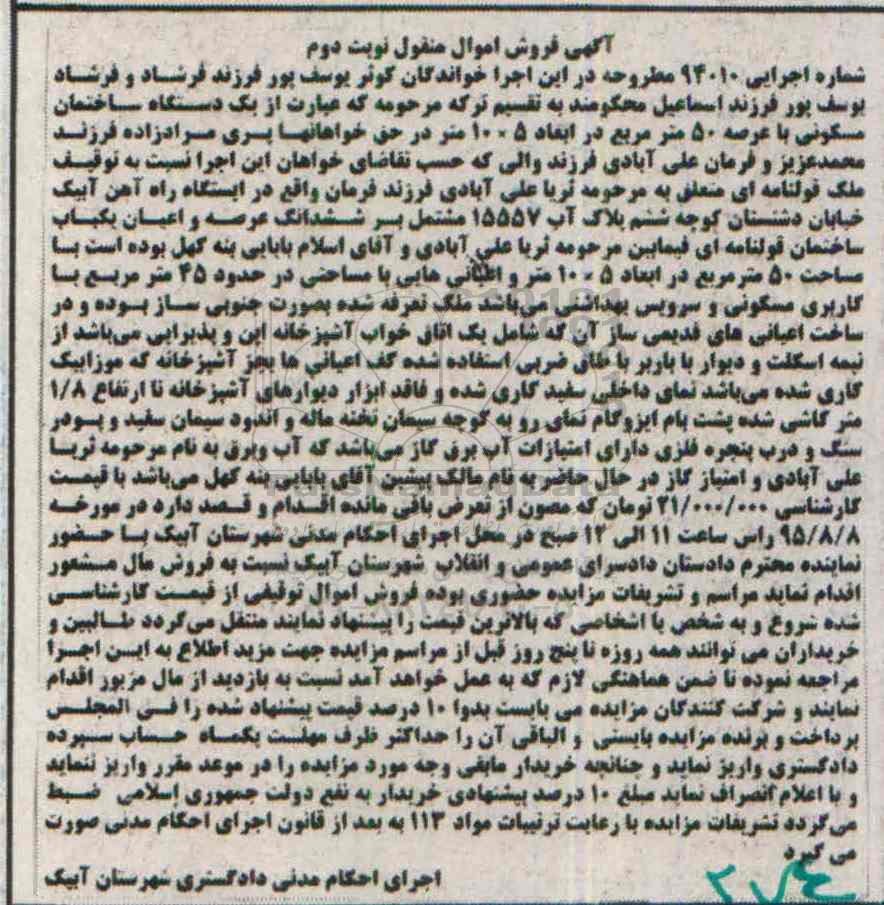 آگهی فروش اموال منقول نوبت دوم
شماره اجرایی ۹۴۰۱۰ مطروحه در این اجرا خواندگان کوثر یوسف پور فرزند فرشاد و فرشاد
یوسف پور فرزند اسماعیل محکومند به تقسیم ترکه مرحومه که عبارت از یک دستگاه ساختمان
مسکونی با عرصه ۵۰ متر مربع در ابعاد ۵ × ۱۰ متر در حق خواهانها پری مرادزاده فرزند
محمدعزیز و فرمان علی آبادی فرزند والی که حسب تقاضای خواهان این اجرا نسبت به توقیف
ملک قولنامه ای متعلق به مرحومه ثریا علی آبادی فرزند فرمان واقع در ایستگاه راه آهن آبیک
خیابان دشتستان کوچه ششم پلاک آب ۱۵۵۵۷ مشتمل بر ششدانگ عرصه و اعیان یکباب
ساختمان قولنامه ای فیمابین مرحومه ثریا علی آبادی و آقای اسلام بابایی پنه کهل بوده است با
مساحت ۵۰ مترمربع در ابعاد ۵ × ۱۰ متر و اعیانی هایی با مساحتی در حدود ۴۵ متر مربع با
کاربری مسکونی و سرویس بهداشتی می‌باشد ملک تعرفه شده بصورت جنوبی ساز بوده و در
ساخت اعیانی های قدیمی ساز آن که شامل یک اتاق خواب آشپزخانه اپن و پذیرایی می‌باشد از
نیمه اسکلت و دیوار با باربر با طاق ضربی استفاده شده کف اعیانی ها بجز آشپزخانه که موزاییک
کاری شده می‌باشد نمای داخلی سفید کاری شده و فاقد ابزار دیوارهای آشپزخانه تا ارتفاع ۱/۸
متر کاشی شده پشت بام ایزوگام نمای رو به کوچه سیمان تخته ماله و اندود سیمان سفید و پودر
سنگ و درب پنجره فلزی دارای امتیازات آب برق گاز می‌باشد که آب وبرق به نام مرحومه ثریا
علی آبادی و امتیاز گاز در حال حاضر به نام مالک پیشین آقای بابایی پنه کهل می‌باشد با قیمت
کارشناسی ۲۱/۰۰۰/۰۰۰ تومان که مصون از تعرض باقی مانده اقدام و قصد دارد در مورخه
۹۵/۸/۸ راس ساعت ۱۱ الی ۱۲ صبح در محل اجرای احکام مدنی شهرستان آبیک با حضور
نماینده محترم دادستان دادسرای عمومی و انقلاب شهرستان آبیک نسبت به فروش مال مشعور
اقدام نماید مراسم و تشریفات مزایده حضوری بوده فروش اموال توقیفی از قیمت کارشناسی
شده شروع و به شخص یا اشخاصی که بالاترین قیمت را پیشنهاد نمایند منتقل می‌گردد طالبین و
خریداران می توانند همه روزه تا پنج روز قبل از مراسم مزایده جهت مزید اطلاع به این اجرا
مراجعه نموده تا ضمن هماهنگی لازم که به عمل خواهد آمد نسبت به بازدید از مال مزبور اقدام
نمایند و شرکت کنندگان مزایده می بایست بدوا ۱۰ درصد قیمت پیشنهاد شده را فی المجلس
پرداخت و برنده مزایده بایستی و الباقی آن را حداکثر ظرف مهلت یکماه حساب سپرده
دادگستری واریز نماید و چنانچه خریدار مابقی وجه مورد مزایده را در موعد مقرر واریز ننماید
و با اعلام انصراف نماید مبلغ ۱۰ درصد پیشنهادی خریدار به نفع دولت جمهوری إسلامی ضبط
می‌گردد تشریفات مزایده با رعایت ترتیبات مواد ۱۱۳ به بعد از قانون اجرای احکام مدنی صورت
می گیرد
اجرای احکام مدنی دادگستری شهرستان آبیک